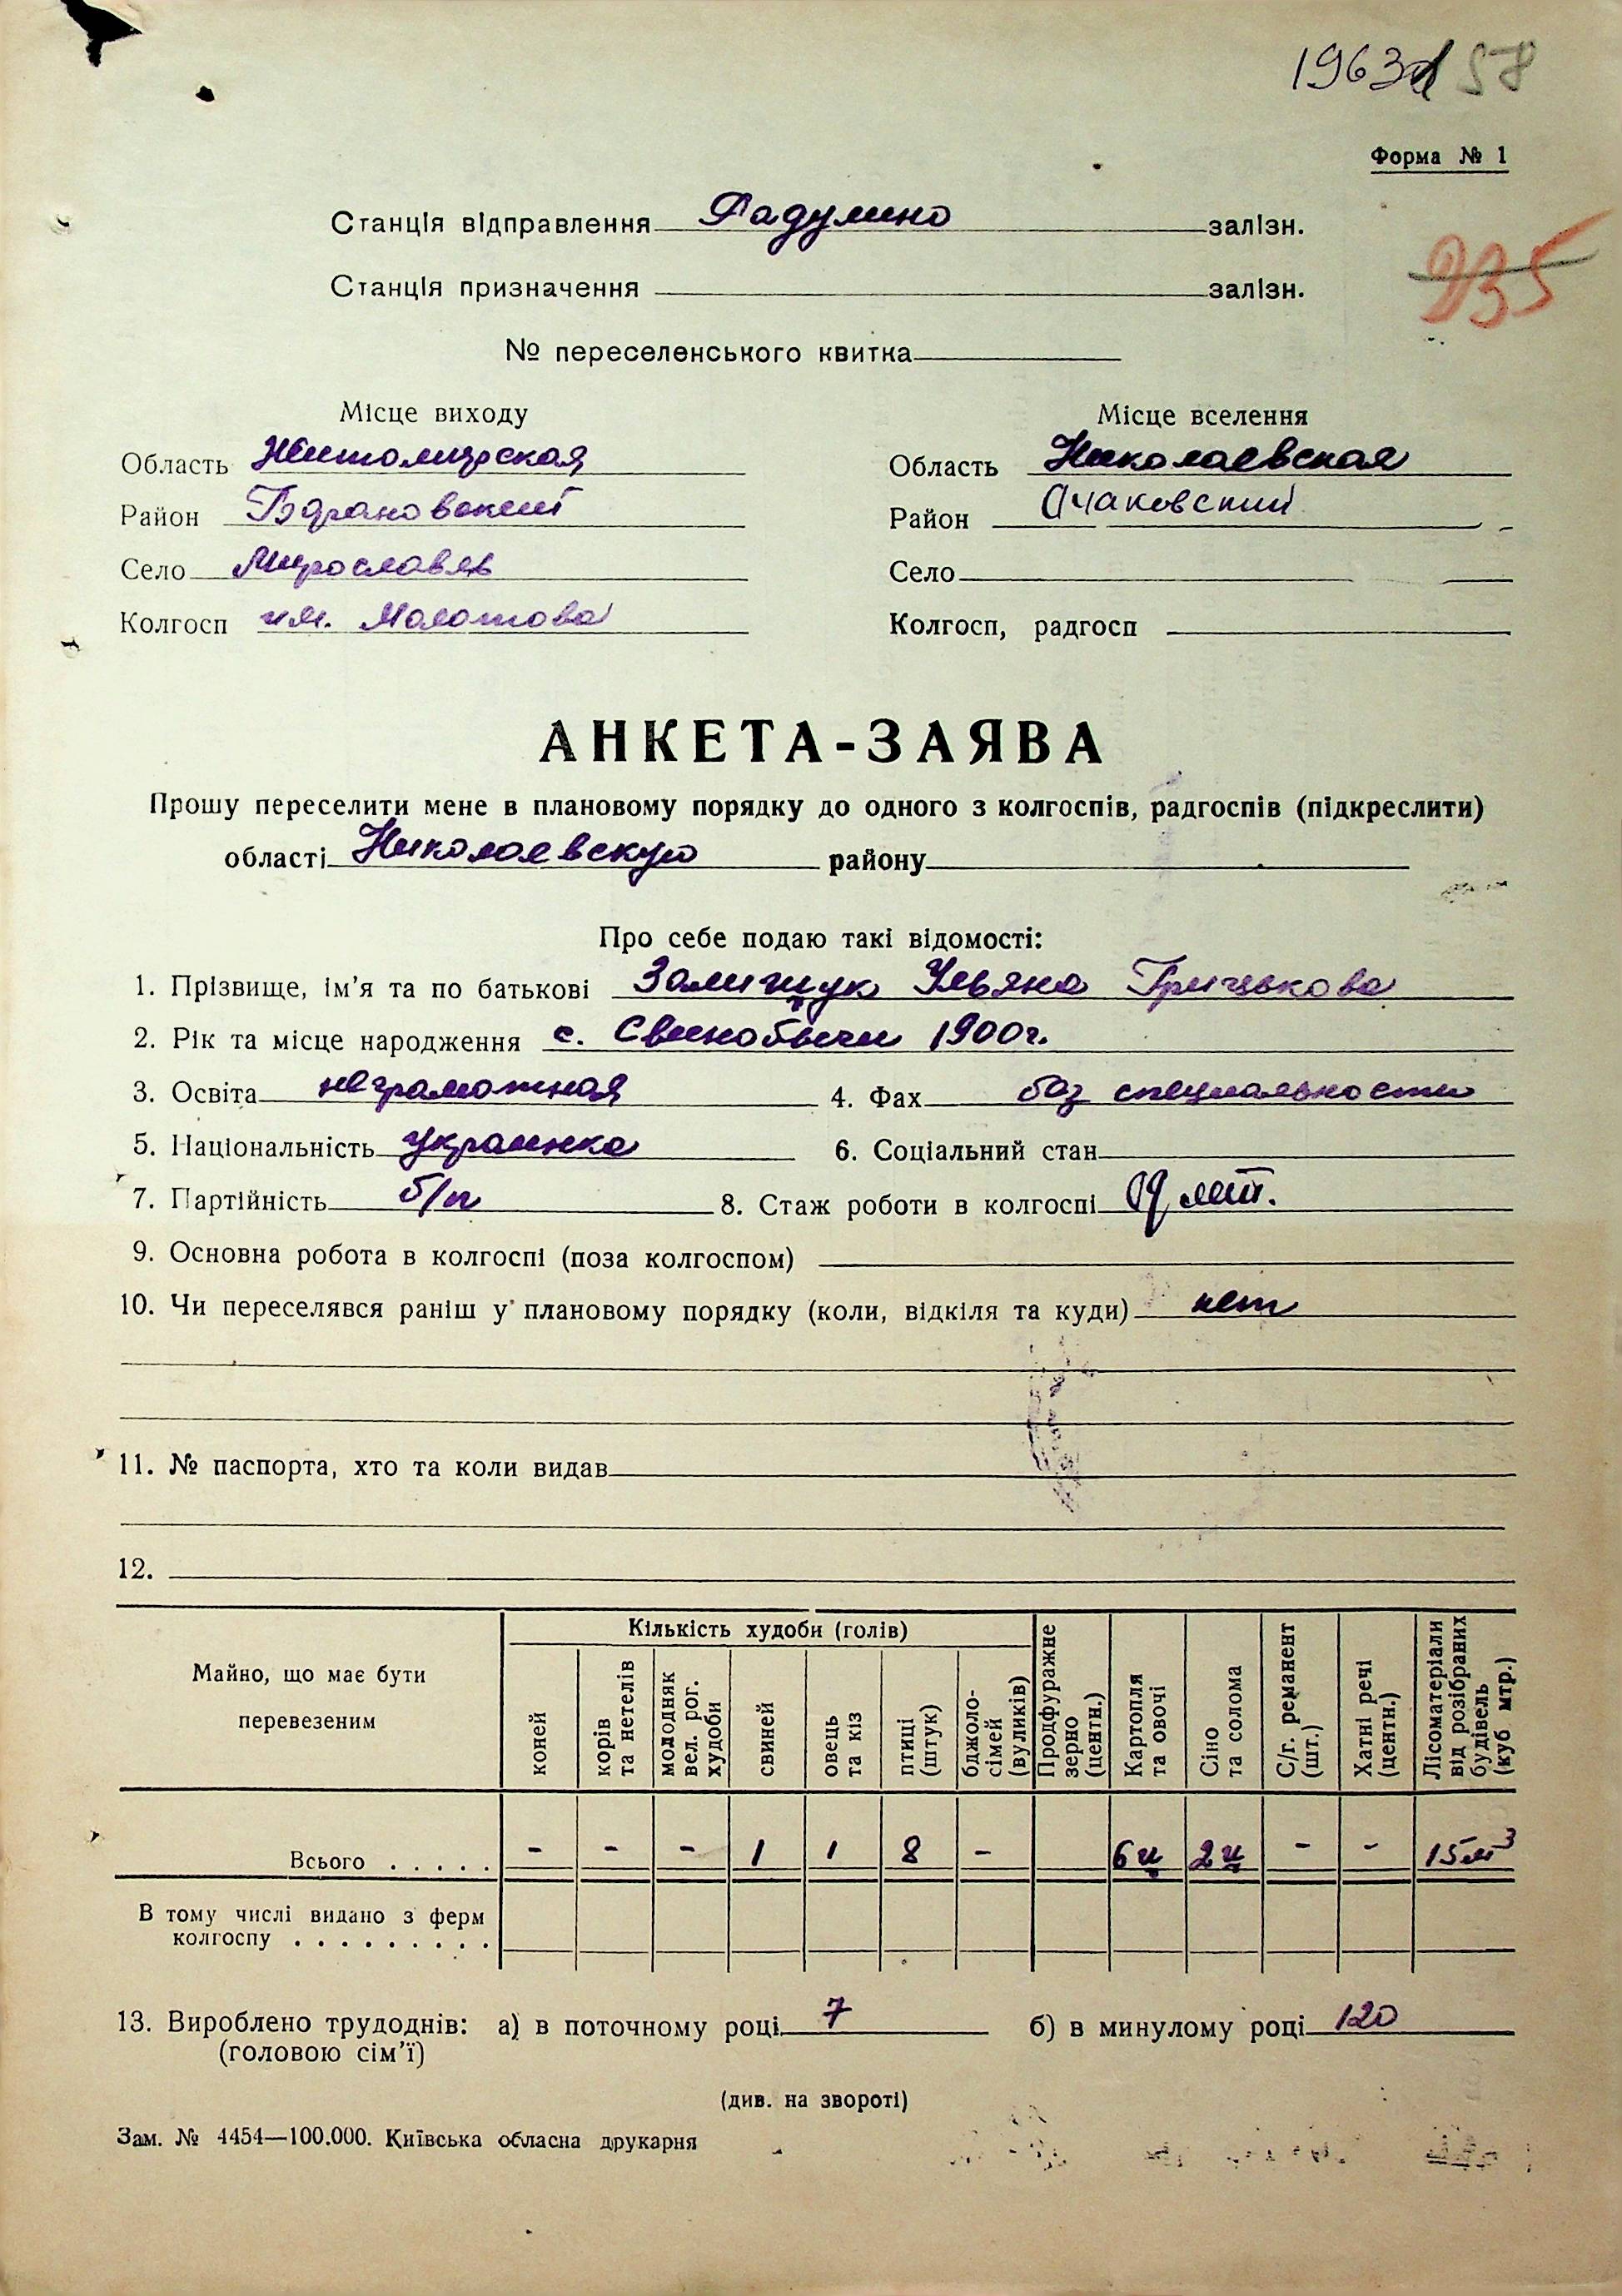 1963 58
Форма № 1
Станція відправлення Радулино залізн.
235
Станція призначення залізн.
№ переселенського квитка
Місце виходу Місце вселення
Область Житомирская Область Николаевская
Район Барановский Район Очаковский
Село Мирославль Село
Колгосп им. Молотова Колгосп, радгосп
АНКЕТА-ЗАЯВА
Прошу переселити мене в плановому порядку до одного з колгоспів, радгоспів (підкреслити)
області Николаевскую району
Про себе подаю такі відомості:
1. Прізвище, ім'я та по батькові Залищук Ульяна Грицькова
2. Рік та місце народження с. Свинобычи 1900г.
3. Освіта неграмотная 4. Фах без специальности
5. Національність украинка 6. Соціальний стан
7. Партійність б/п 8. Стаж роботи в колгоспі 19 лет.
9. Основна робота в колгоспі (поза колгоспом)
10. Чи переселявся раніш у плановому порядку (коли, відкіля та куди) нет
11. № паспорта, хто та коли видав
12.
Майно, що має бути перевезеним
Кількість худоби (голів)
коней
корів та нетелів
молодняк вел. рог. худоби
свиней
овець та кіз
птиці (штук)
бджоло-сімей (вуликів)
Продфуражне зерно (центн.)
Картопля та овочі
Сіно та солома
С/г. реманент (шт.)
Хатні речі (центн.)
Лісоматеріали від розібраних будівель (куб мтр.)
Всього . . . . . - - - 1 1 8 - 6ц 2ц - - 15м³
В тому числі видано з ферм
колгоспу . . . . . . . . .
13. Вироблено трудоднів: а) в поточному році 7 б) в минулому році 120
(головою сім'ї)
(див. на звороті)
Зам. № 4454—100.000. Київська обласна друкарня